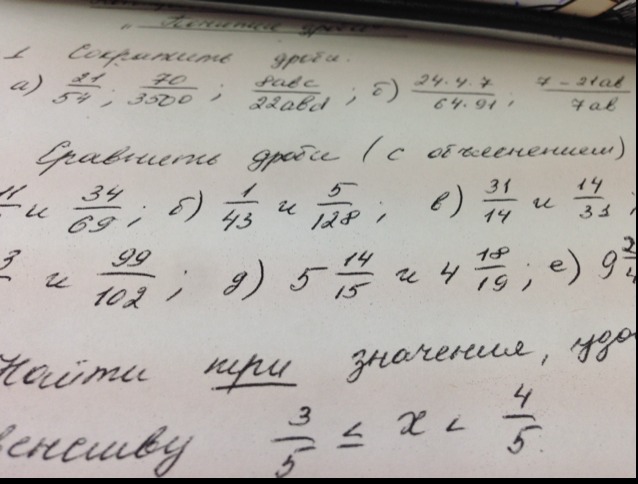 "Понятия дроби"
1 Сократить дроби.
а) 21/54; 70/3500; 8abc/22abd; б) 24·4·7/64·91; 7-21ab/7ab
Сравнить дроби (с объяснением)
и 34/69; б) 1/43 и 5/128; в) 31/14 и 14/33;
и 99/102; д) 5 14/15 и 4 18/19; е) 9
Найти три значения,
3/5 ≤ x < 4/5.